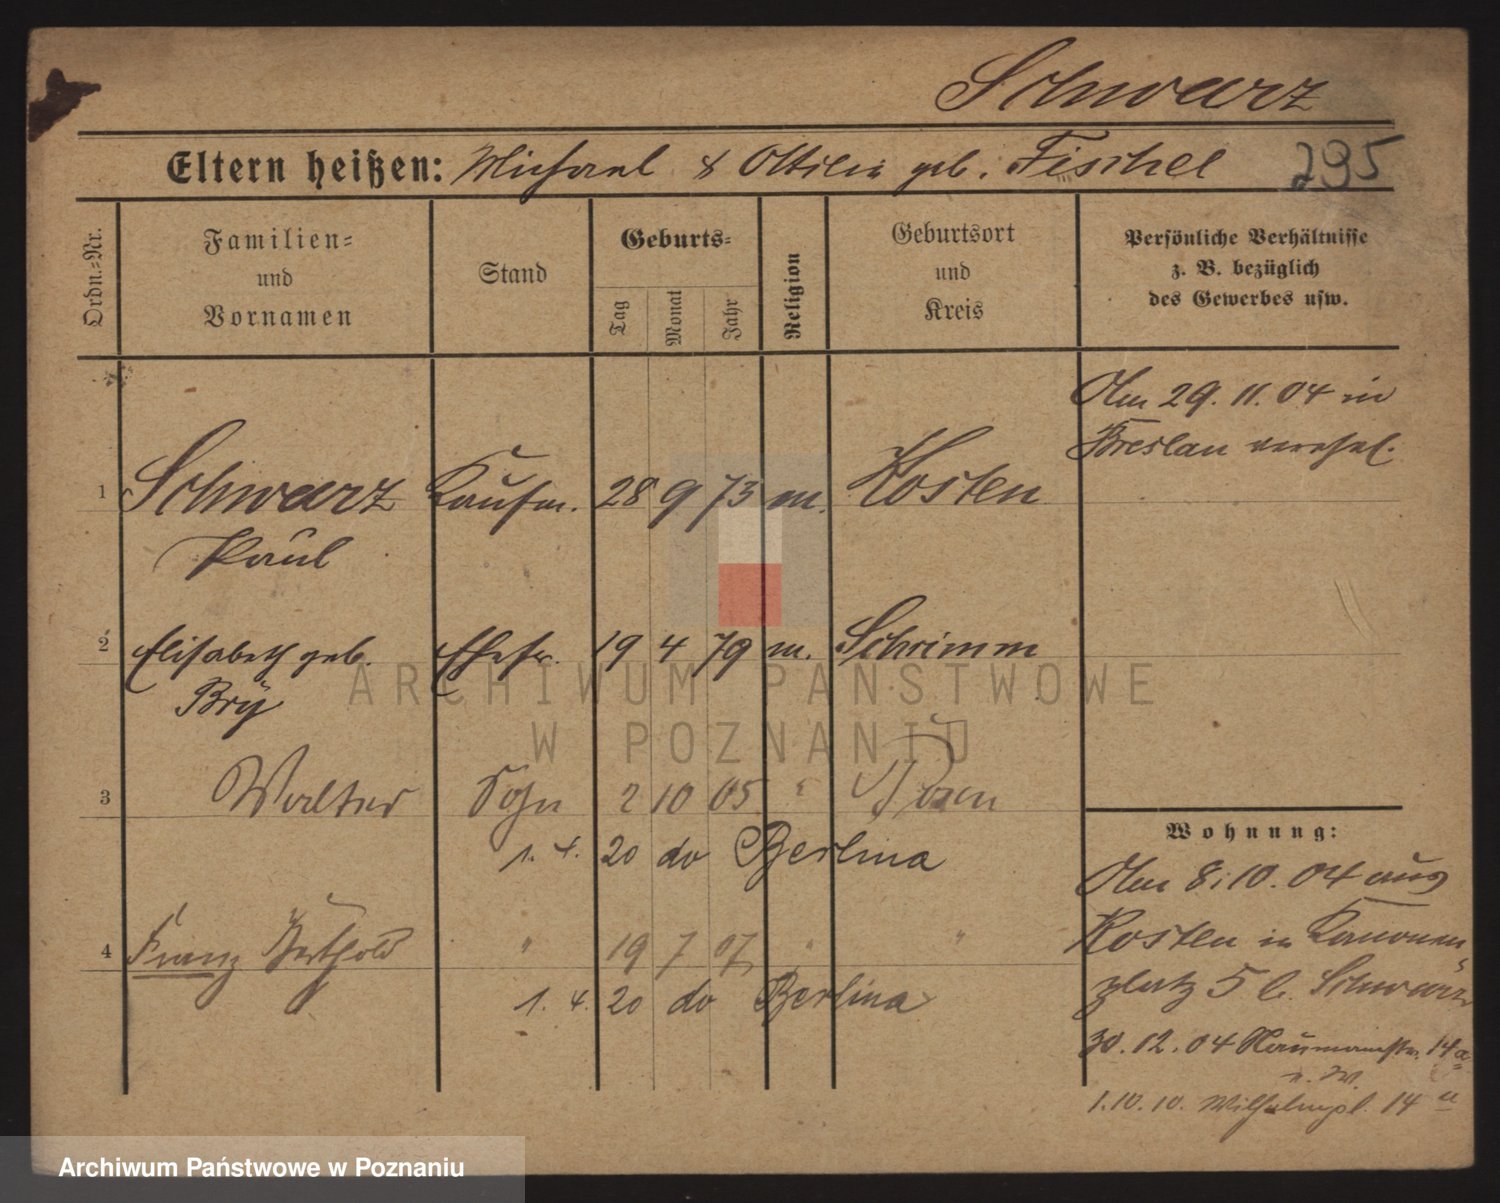 Schwarz
Eltern heißen: Michael & Ottilie geb. Fischel 295
Ordn.-Nr.
Familien-
und
Vornamen
Stand
Geburts-
Tag
Monat
Jahr
Religion
Geburtsort
und
Kreis
Persönliche Verhältnisse
z. B. bezüglich
des Gewerbes usw.
Am 29. 11. 04 in
Breslau verehel.
1 Schwarz Kaufm. 28 9 73 m. Kosten
Paul
2 Elisabeth geb. Ehefr. 19 4 79 m. Schrimm
Bry
3 Walter Sohn 2 10 05 " Posen
1. 4. 20 do Berlina
4 Franz Berthold " 19 7 07 " "
1. 4. 20 do Berlina
Wohnung:
Am 8.10.04 aus
Kosten in Kanonen-
platz 5 b. Schwarz
30.12.04 Naumannstr. 14a
1.10.10. Wilhelmpl. 14
ARCHIWUM PAŃSTWOWE
W POZNANIU
Archiwum Państwowe w Poznaniu